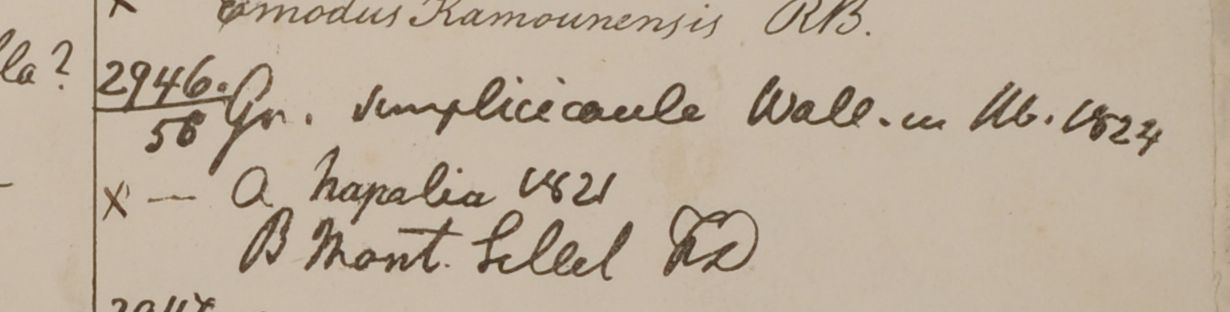 x Tomodus Kamounensis RB.
la?
2946. Gr. simplicicaule Wall. in Hb. 1824
58
x — a Napalia 1821
B Mont. Sillet FD